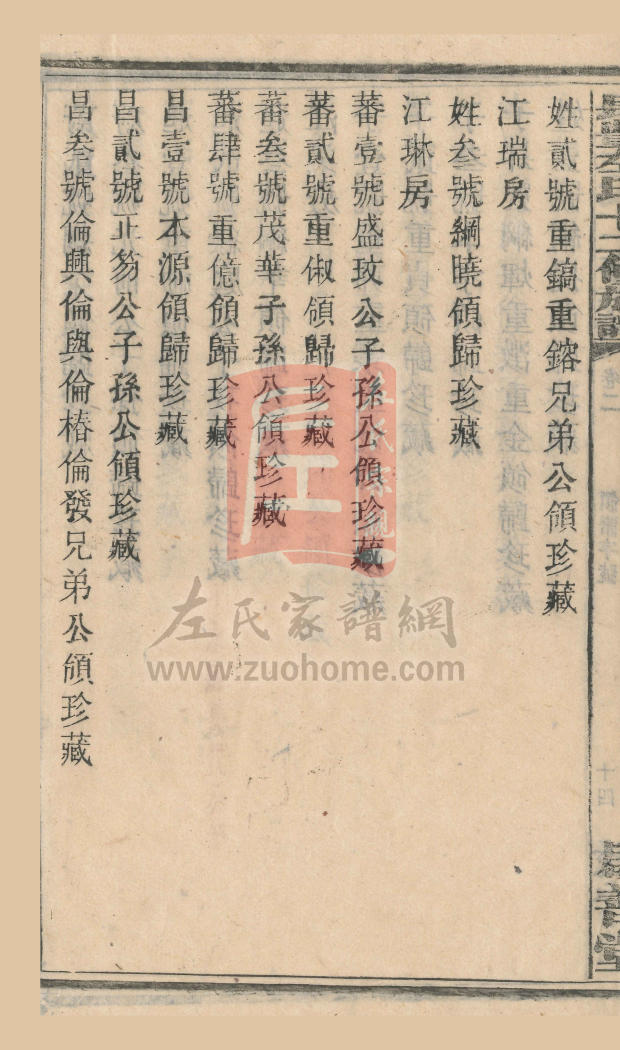 姓貳號重鎬重鎔兄弟公領珍藏
江瑞房
姓叁號綱曉領歸珍藏
江琳房
蕃壹號盛玟公子孫公領珍藏
蕃貳號重俶領歸珍藏
蕃叁號茂華子孫公領珍藏
蕃肆號重億領歸珍藏
昌壹號本源領歸珍藏
昌貳號正笏公子孫公領珍藏
昌叁號倫興倫與倫椿倫發兄弟公領珍藏
卷二
十四
善堂
左氏家譜網
www.zuohome.com